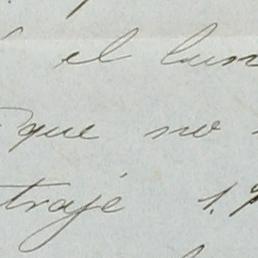 el lun
que no
traje 1.9